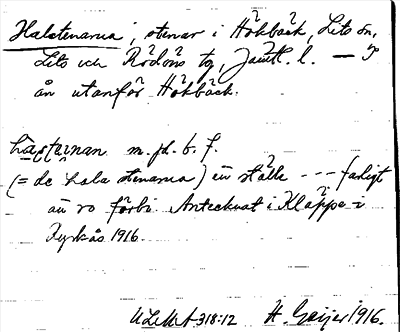 Halstenarna, stenar i Hökbäck, Lits sn,
Lits och Rödöns tg, Jämtl. l. — I
ån utanför Hökbäck.
hàstäinan m. pl. b. f.
(= de hala stenarna) en ställe --- farligt
än ro förbi. Antecknat i Kläppe i
Kyrkås 1916.
ULMA 318:12 H. Geijer 1916.